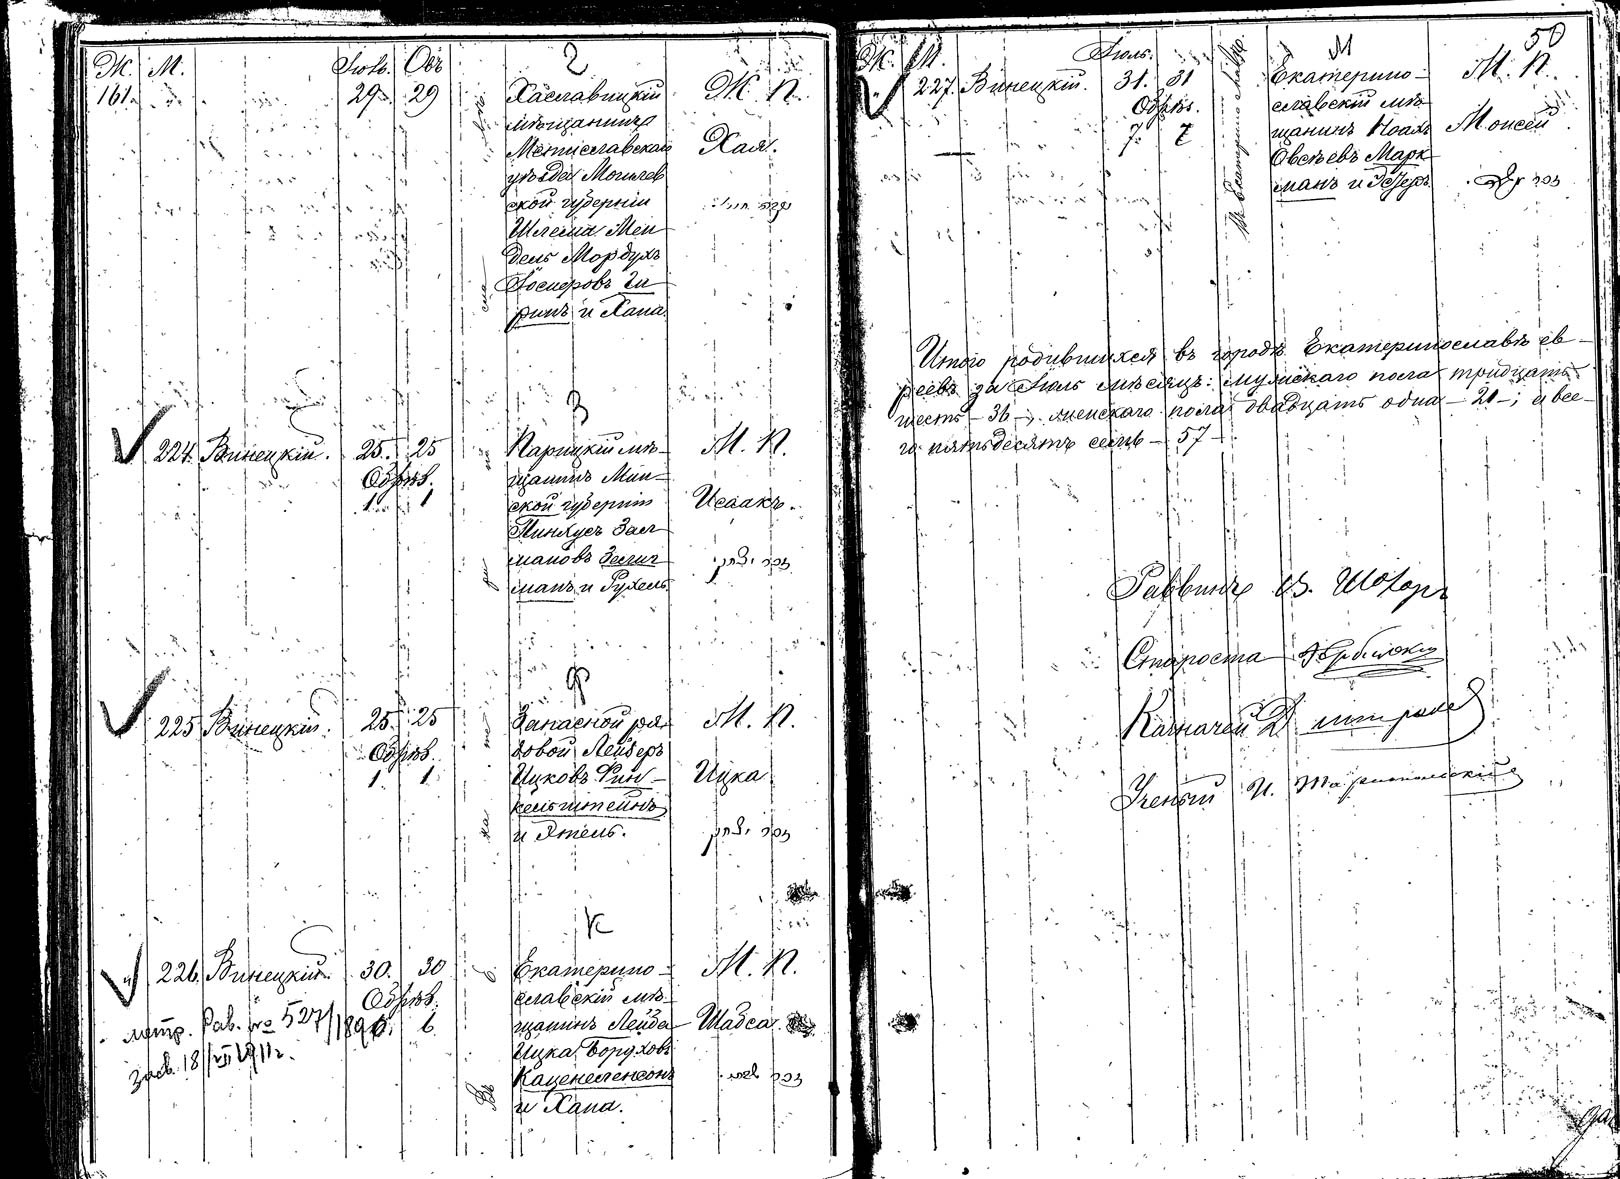 Ж. М. Іюль. Овъ
161. 29. 29
Хаславицкій
мѣщанинъ
Мстиславскаго
уѣзда Могилев
ской губерніи
Шлёма Мен
дель Мордухъ
и Хана.
Ж. П.
Хая.
З
224. Винецкій. 25. 25
Обрѣз.
1 1
Парицкій мѣ-
щанинъ Мин-
ской губерніи
Пинхусъ Зел
мановъ Зелиг
манъ и Рухель
М. П.
Исаакъ.
זכר יצחק
Ф
225 Винецкій. 25. 25
Обрѣз.
1 1
Запасной ря-
довой Лейзеръ
Ицковъ Фин-
кельштейнъ
и Этель.
М. П.
Ицка
זכר יצחק
К
226. Винецкій. 30. 30
Обрѣз.
6. 6.
метр. Рав. № 527/1896
Засв. 18/VII 1911 г.
Екатерино-
славскій мѣ-
щанинъ Лейба
Ицка Боруховъ
Каценеленсонъ
и Хана.
М. П.
Шабса
זכר שבתי
50
Ж. М. Іюль.
227. Винецкій. 31. 31
Обрѣз.
7. 7
М
Екатерино-
славскій мѣ-
щанинъ Ноахъ
Овсѣевъ Марк
манъ и Эстеръ
М. П.
Моисей
זכר משה
Итого родившихся въ городѣ Екатеринославѣ ев-
реевъ за Іюль мѣсяцъ: мужскаго пола тридцать
шесть - 36 -, женскаго пола двадцать одна - 21 -; и все-
го пятьдесятъ семь - 57 -
Раввинъ В. Шохоръ
Староста
Казначей
Ученый И.